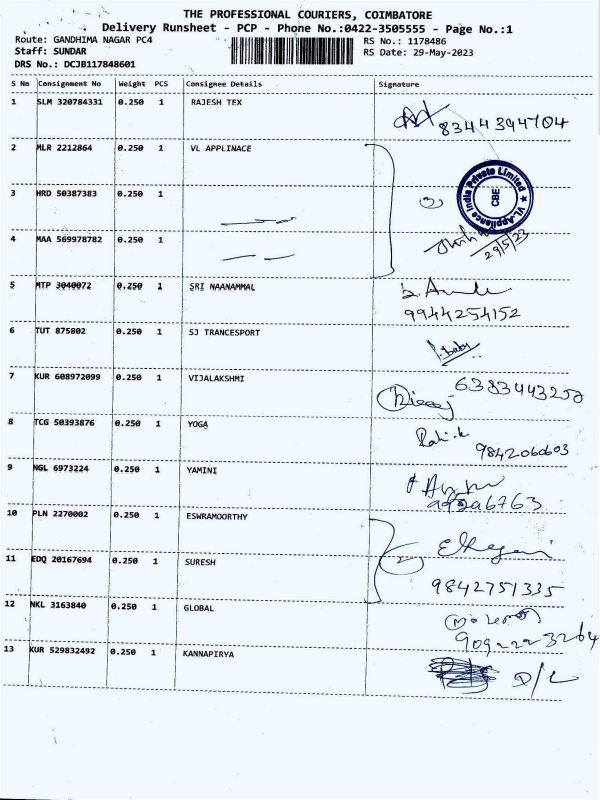 THE PROFESSIONAL COURIERS, COIMBATORE
Delivery Runsheet - PCP - Phone No.:0422-3505555 - Page No.:1
Route: GANDHIMA NAGAR PC4 RS No.: 1178486
Staff: SUNDAR RS Date: 29-May-2023
DRS No.: DCJB117848601
S No Consignment No Weight PCS Consignee Details Signature
1 SLM 320784331 0.250 1 RAJESH TEX
8344394704
2 MLR 2212864 0.250 1 VL APPLINACE
VL Appliance India Private Limited ★ CBE
3 HRD 50387383 0.250 1
3
4 MAA 569978782 0.250 1
29/5/23
5 MTP 3040072 0.250 1 SRI NAANAMMAL
9944254152
6 TUT 875802 0.250 1 SJ TRANCESPORT
P. Baby
7 KUR 608972099 0.250 1 VIJALAKSHMI
8 TCG 50393876 0.250 1 YOGA
9842060603
9 NGL 6973224 0.250 1 YAMINI
10 PLN 2270002 0.250 1 ESWRAMOORTHY
11 EDQ 20167694 0.250 1 SURESH
2
9842751335
12 NKL 3163840 0.250 1 GLOBAL
13 KUR 529832492 0.250 1 KANNAPIRYA
D/L